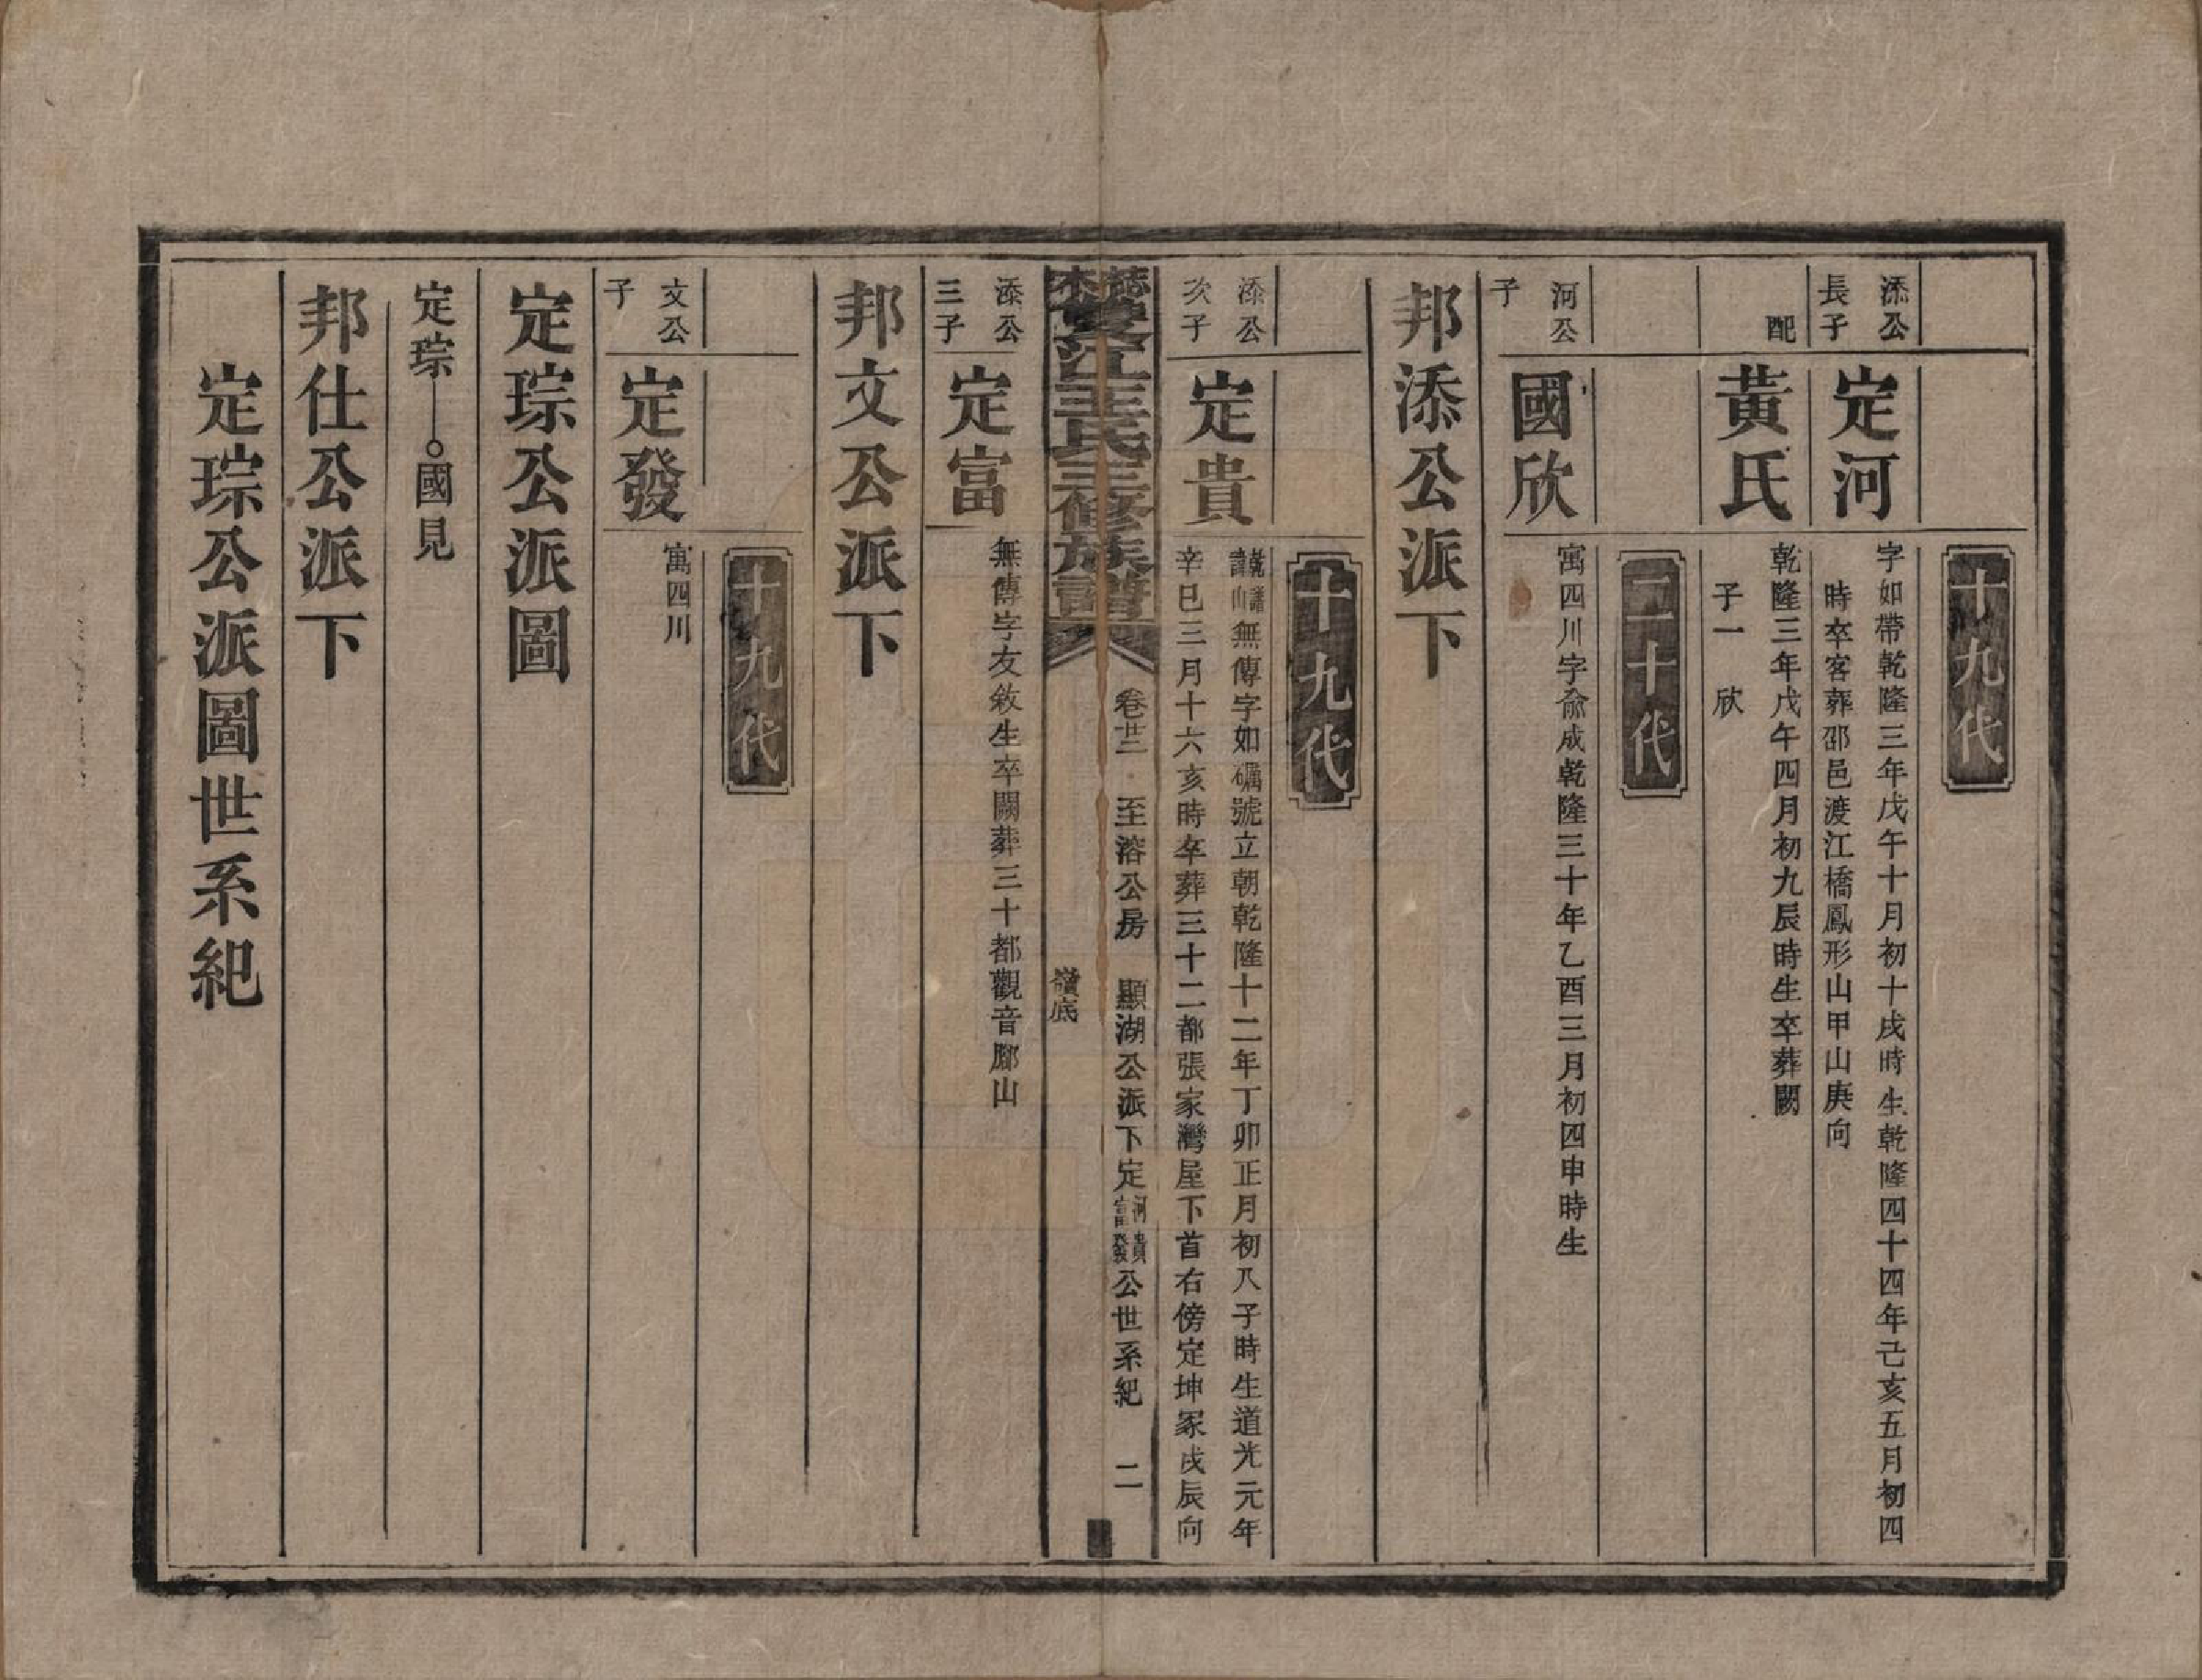 十九代
添公長子
定河
字如帶乾隆三年戊午十月初十戌時生乾隆四十四年己亥五月初四
時卒客葬邵邑渡江橋鳳形山甲山庚向
配
黃氏
乾隆三年戊午四月初九辰時生卒葬闕
子一 欣
二十代
河公子
國欣
寓四川字俞成乾隆三十年乙酉三月初四申時生
邦添公派下
十九代
添公次子
定貴
無傳字如礪號立朝乾隆十二年丁卯正月初八子時生道光元年
辛巳三月十六亥時卒葬三十二都張家灣屋下首右傍定坤冢戌辰向
雙江王氏三修族譜
卷廿二 至溶公房 顯湖公派下定河貴富發公世系紀 二
嶺底
添公三子
定富
無傳字友敘生卒闕葬三十都觀音腳山
邦文公派下
十九代
文公子
定發
寓四川
定琮公派圖
定琮—○國見
邦仕公派下
定琮公派圖世系紀